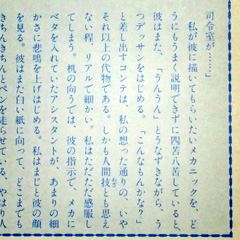 司令室が……」
　私が彼に描いてもらいたいメカニックを、ど
うにもうまく説明できずに四苦八苦していると、
彼はまた、「うんうん」とうなずきながら、う
つデッサンをはじめる。「こんなもんかな？」
と差し出すコンテは、私の想った通りの、いや
それ以上の代物である――しかも人間技とも思え
ない程、リアルで細かい。私はただただ感服し
てしまう。机の向うでは、彼の指示で、メカに
ベタを入れていたアシスタントが、あまりの細
かさに悲鳴を上げはじめる。私はまじまじと彼の顔
を見る。彼はまた白い紙に向って、どこまでも
きちんきちんとペンを走らせている。やはり人